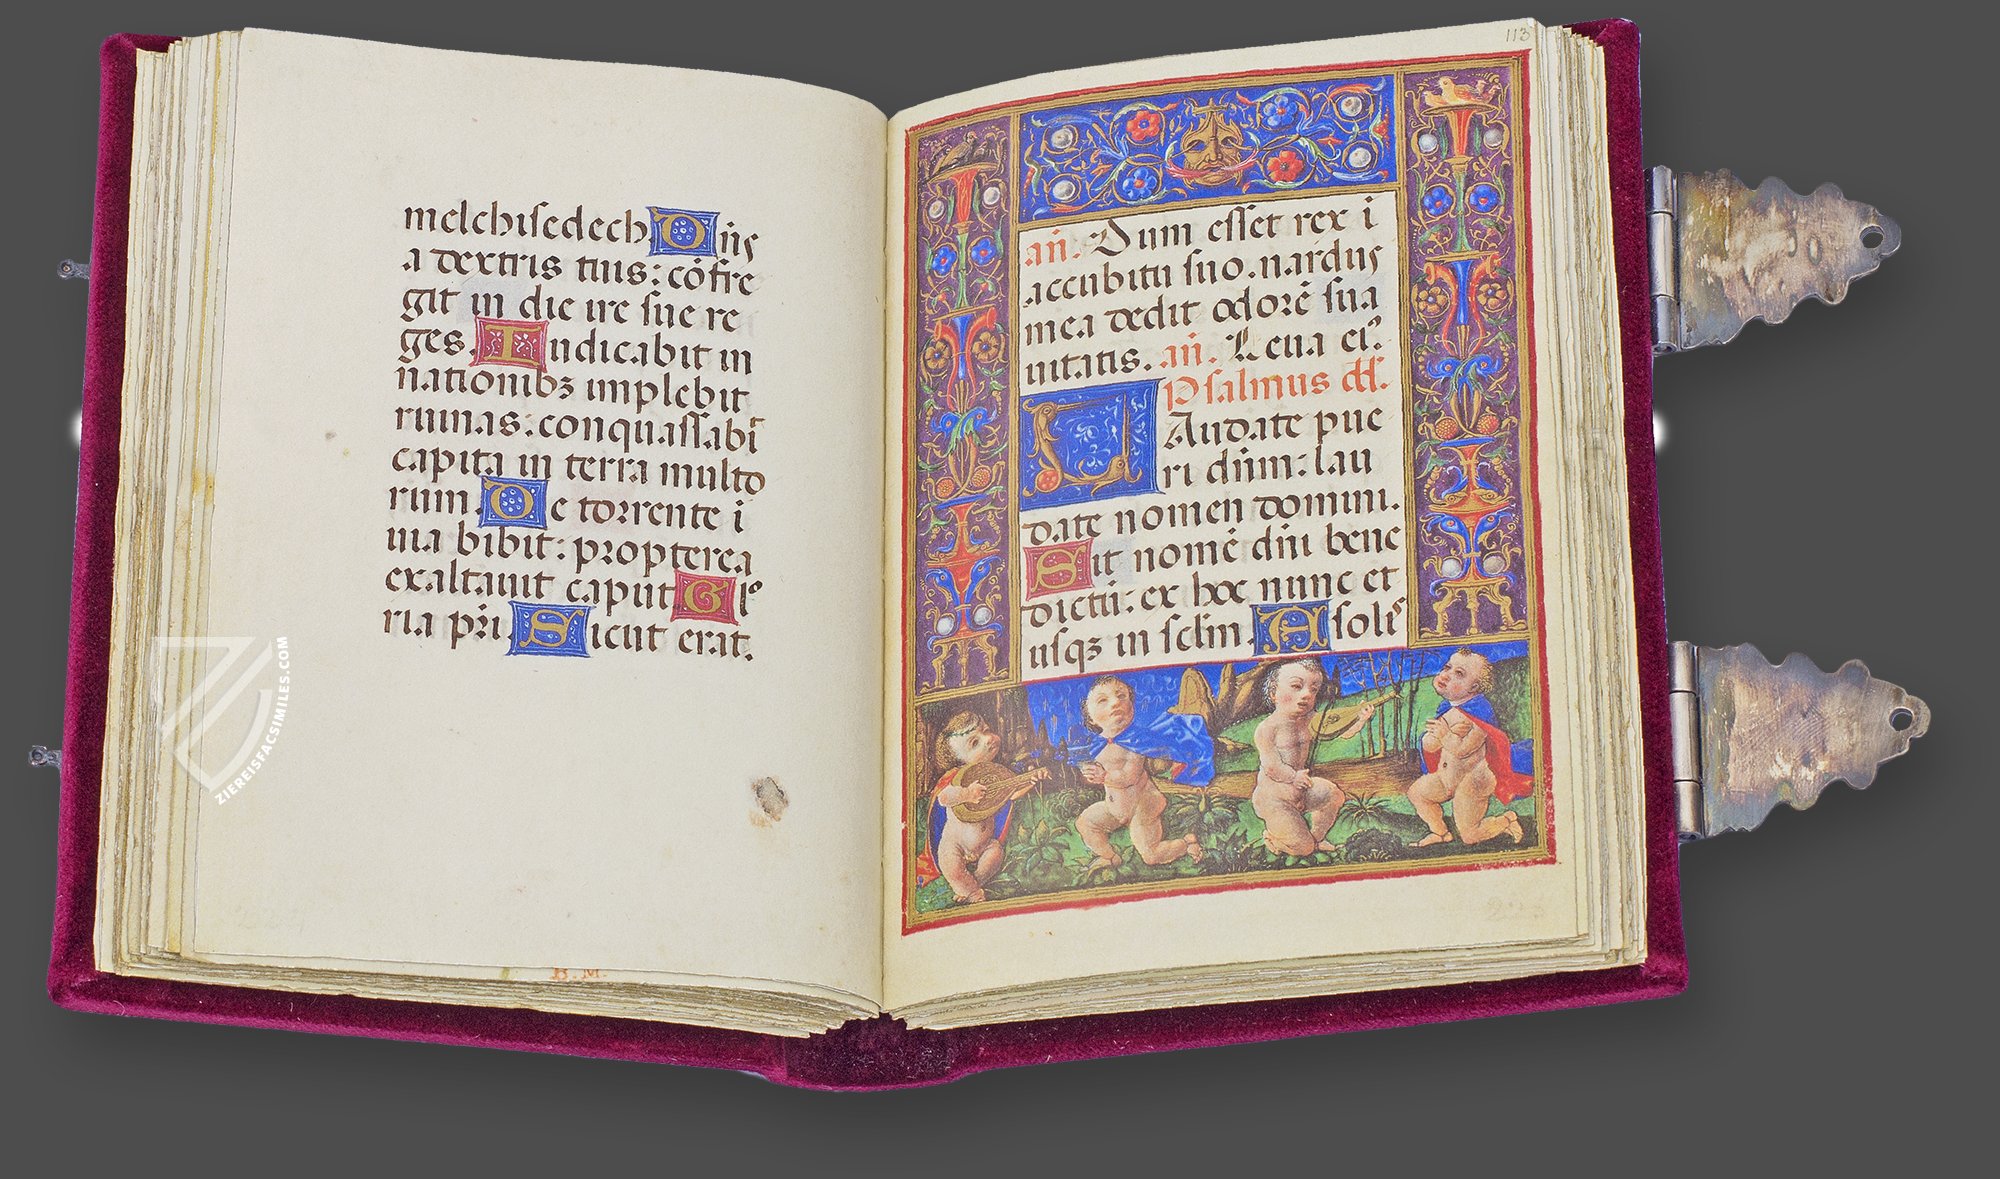 melchisedech. Dn̄s
a dextris tuis: cōfre
git in die ire sue re
ges. Iudicabit in
nationibꝫ implebit
ruinas: conquassabi͛t
capita in terra multo
rum. De torrente i
uia bibit: propterea
exaltauit caput. Glº
ria pr̄i. Sicut erat.
B. M.
ZIEREISFACSIMILES.COM
113
an̄. Dum esset rex i
accubitu suo. nardus
mea dedit odorē sua
uitatis. an̄. Leua ei᾽.
Psalmus dd.
LAudate pue
ri dn̄m: lau
date nomen domini.
Sit nomē dn̄i bene
dictū: ex hoc nunc et
usqꝫ in sclm̄. A solis